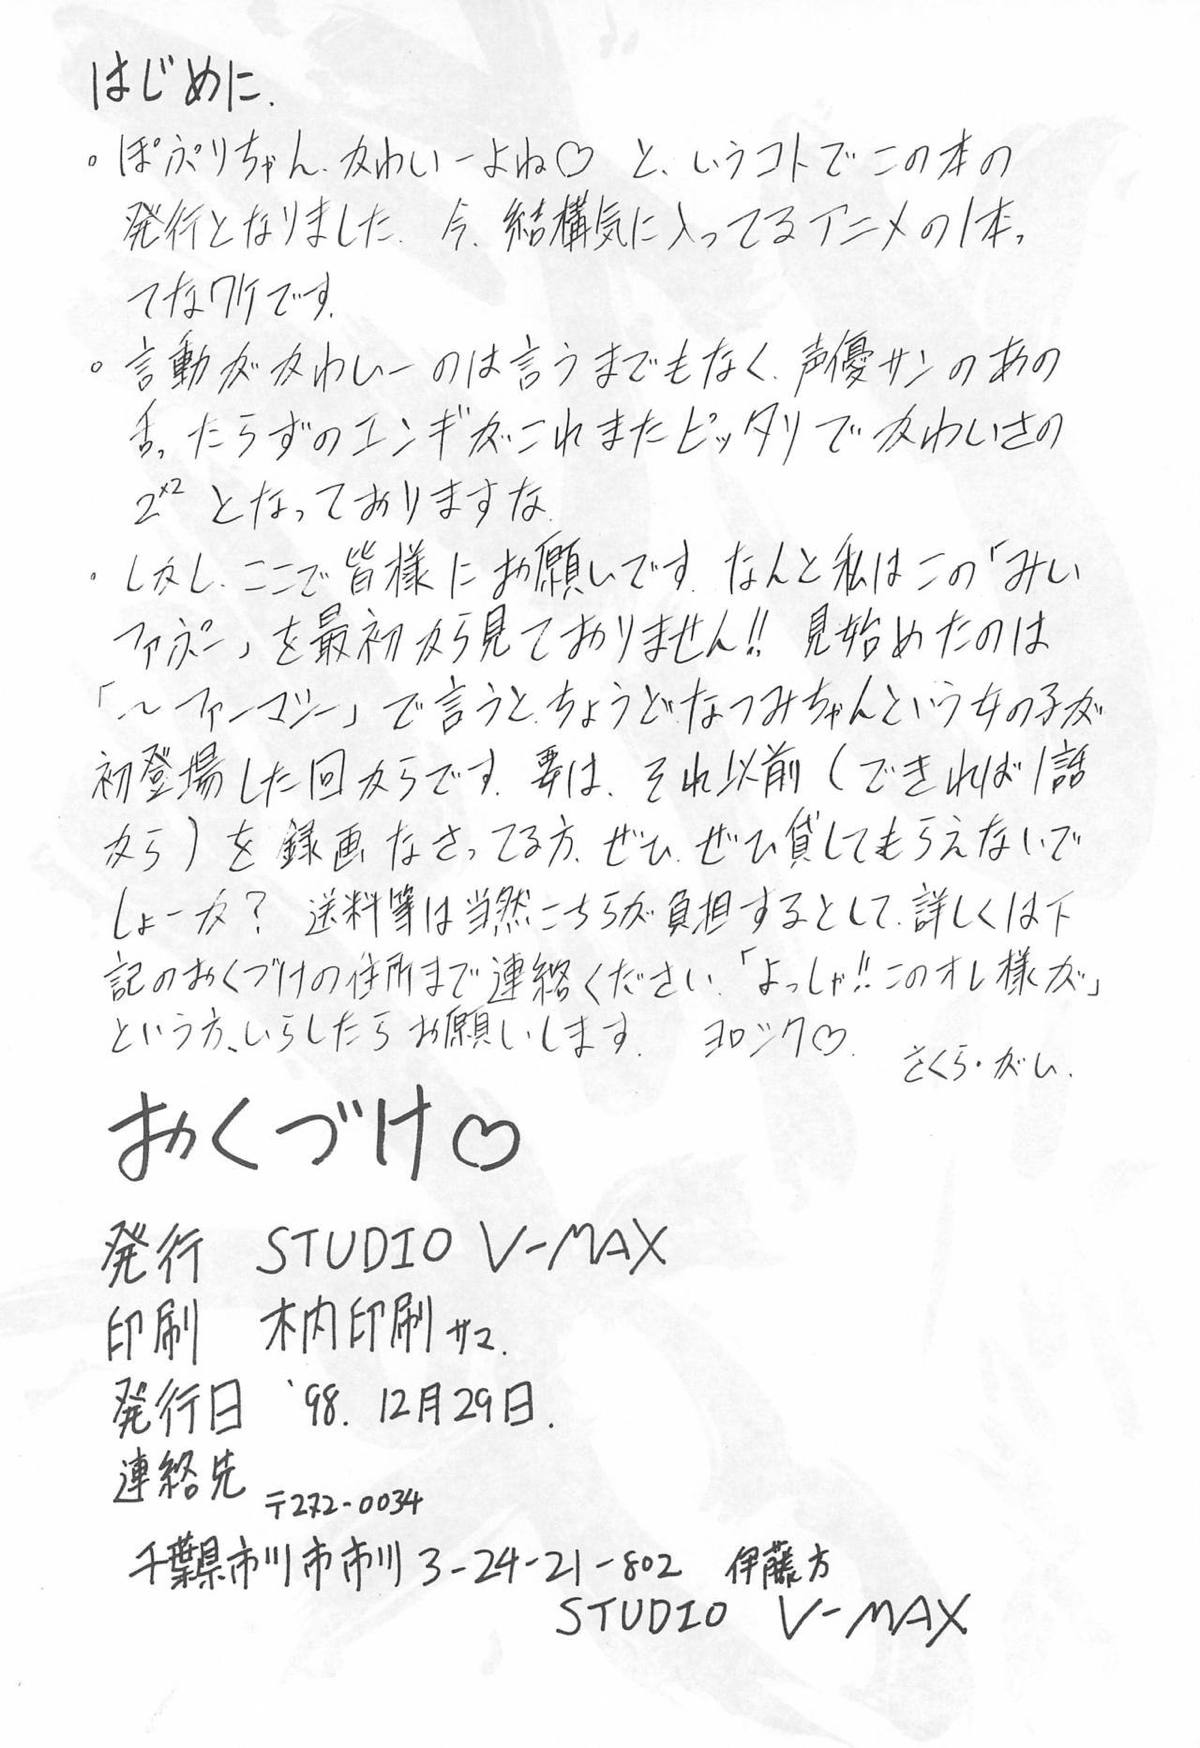 はじめに.
。ぽぷりちゃん、かわいーよね♡ と、いうコトでこの本の
発行となりました. 今、結構気に入ってるアニメの1本っ
てなワケです.
。言動がかわいーのは言うまでもなく、声優サンのあの
舌ったらずのエンギがこれまたピッタリでかわいさの
2ˣ² となっておりますな.
。しかし、ここで皆様にお願いです. なんと私はこの「みい
ファぷー」を最初から見ておりません!! 見始めたのは
「〜ファンマシー」で言うと、ちょうどなつみちゃんという女の子が
初登場した回からです. 要は、それ以前(できれば1話
から)を録画なさってる方、ぜひ、ぜひ貸してもらえないで
しょーか? 送料等は当然こちらが負担するとして、詳しくは下
記のおくづけの住所まで連絡ください.「よっしゃ!!このオレ様が」
という方、いらしたらお願いします. ヨロシク♡.
さくら・がい.
おくづけ♡
発行 STUDIO V-MAX
印刷 木内印刷サマ.
発行日 '98. 12月29日.
連絡先
〒272-0034
千葉県市川市市川3-24-21-802 伊藤方
STUDIO V-MAX